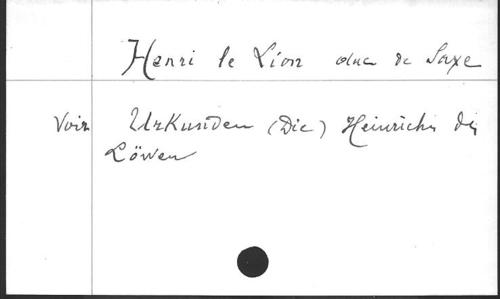 Henri le Lion duc de Saxe
Voir Urkunden (Die) Heinrichs des
Löwen